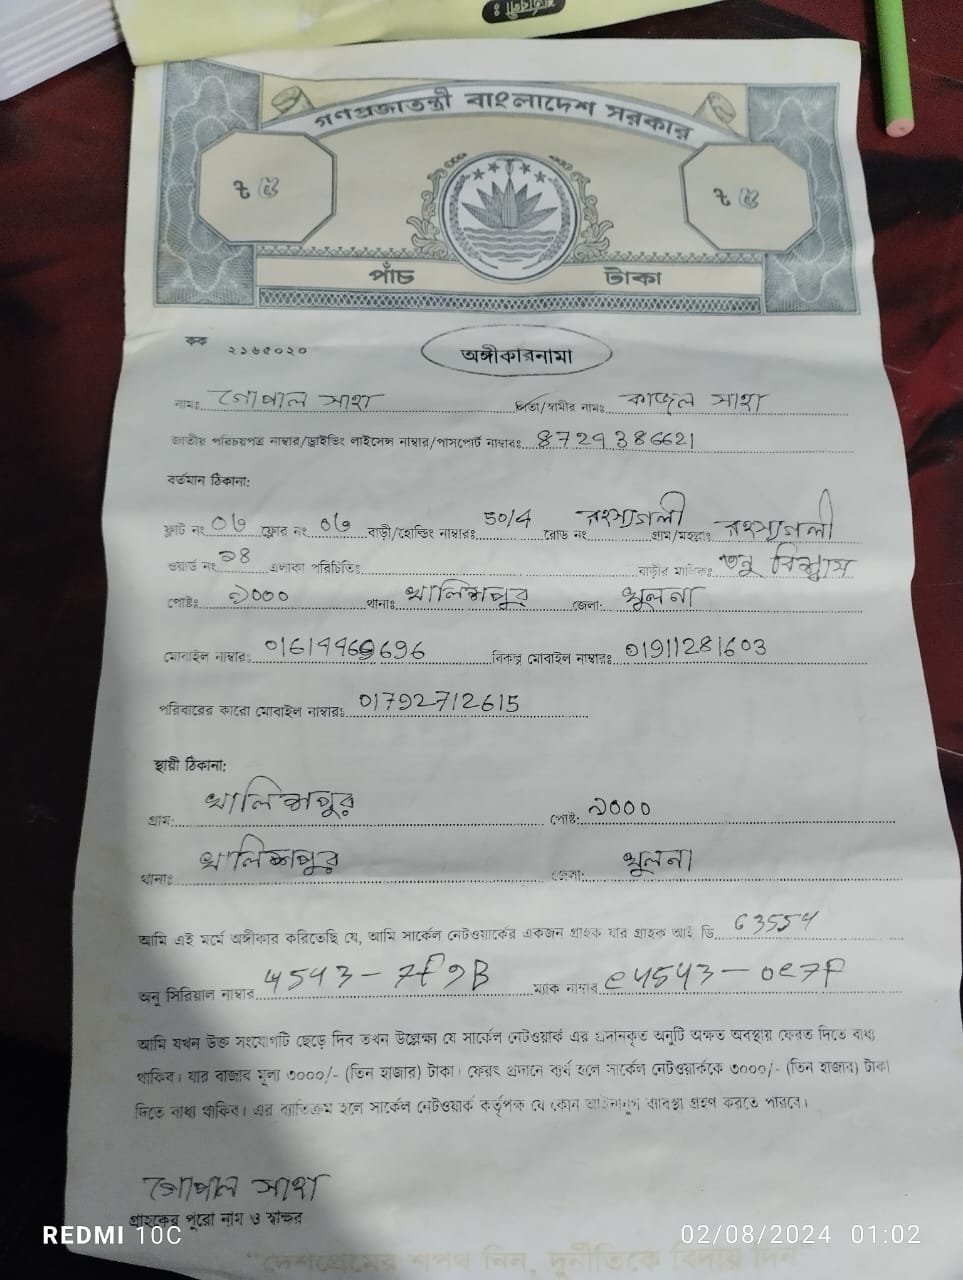 গণপ্রজাতন্ত্রী বাংলাদেশ সরকার
৳ ৫ ৳ ৫
পাঁচ টাকা
কক ২১৬৫০২০
অঙ্গীকারনামা
নামঃ গোপাল সাহা পিতা/স্বামীর নামঃ কাজল সাহা
জাতীয় পরিচয়পত্র নাম্বার/ড্রাইভিং লাইসেন্স নাম্বার/পাসপোর্ট নাম্বারঃ 8729386621
বর্তমান ঠিকানা:
ফ্লাট নং ০৬ ফ্লোর নং ০৬ বাড়ী/হোল্ডিং নাম্বারঃ 50/4 রোড নং রহস্যগলী গ্রাম/মহল্লাঃ রহস্যগলী
ওয়ার্ড নং ১৪ এলাকা পরিচিতিঃ বাড়ীর মালিকঃ তনু বিশ্বাস
পোষ্টঃ ৯০০০ থানাঃ খালিশপুর জেলা: খুলনা
মোবাইল নাম্বারঃ বিকল্প মোবাইল নাম্বারঃ 01911281603
পরিবারের কারো মোবাইল নাম্বারঃ 01792712615
স্থায়ী ঠিকানা:
গ্রাম: খালিশপুর পোষ্ট: ৯০০০
থানাঃ খালিশপুর জেলা: খুলনা
আমি এই মর্মে অঙ্গীকার করিতেছি যে, আমি সার্কেল নেটওয়ার্কের একজন গ্রাহক যার গ্রাহক আই ডি 63554
অনু সিরিয়াল নাম্বার ম্যাক নাম্বার
আমি যখন উক্ত সংযোগটি ছেড়ে দিব তখন উল্লেক্ষ্য যে সার্কেল নেটওয়ার্ক এর প্রদানকৃত অনুটি অক্ষত অবস্থায় ফেরত দিতে বাধ্য
থাকিব। যার বাজার মূল্য ৩০০০/- (তিন হাজার) টাকা। ফেরৎ প্রদানে ব্যর্থ হলে সার্কেল নেটওয়ার্ককে ৩০০০/- (তিন হাজার) টাকা
দিতে বাধ্য থাকিব। এর ব্যাতিক্রম হলে সার্কেল নেটওয়ার্ক কর্তৃপক্ষ যে কোন আইনানুগ ব্যবস্থা গ্রহণ করতে পারবে।
গোপাল সাহা
গ্রাহকের পুরো নাম ও স্বাক্ষর
REDMI 10C 02/08/2024 01:02
"দেশপ্রেমের শপথ নিন, দুর্নীতিকে বিদায় দিন"